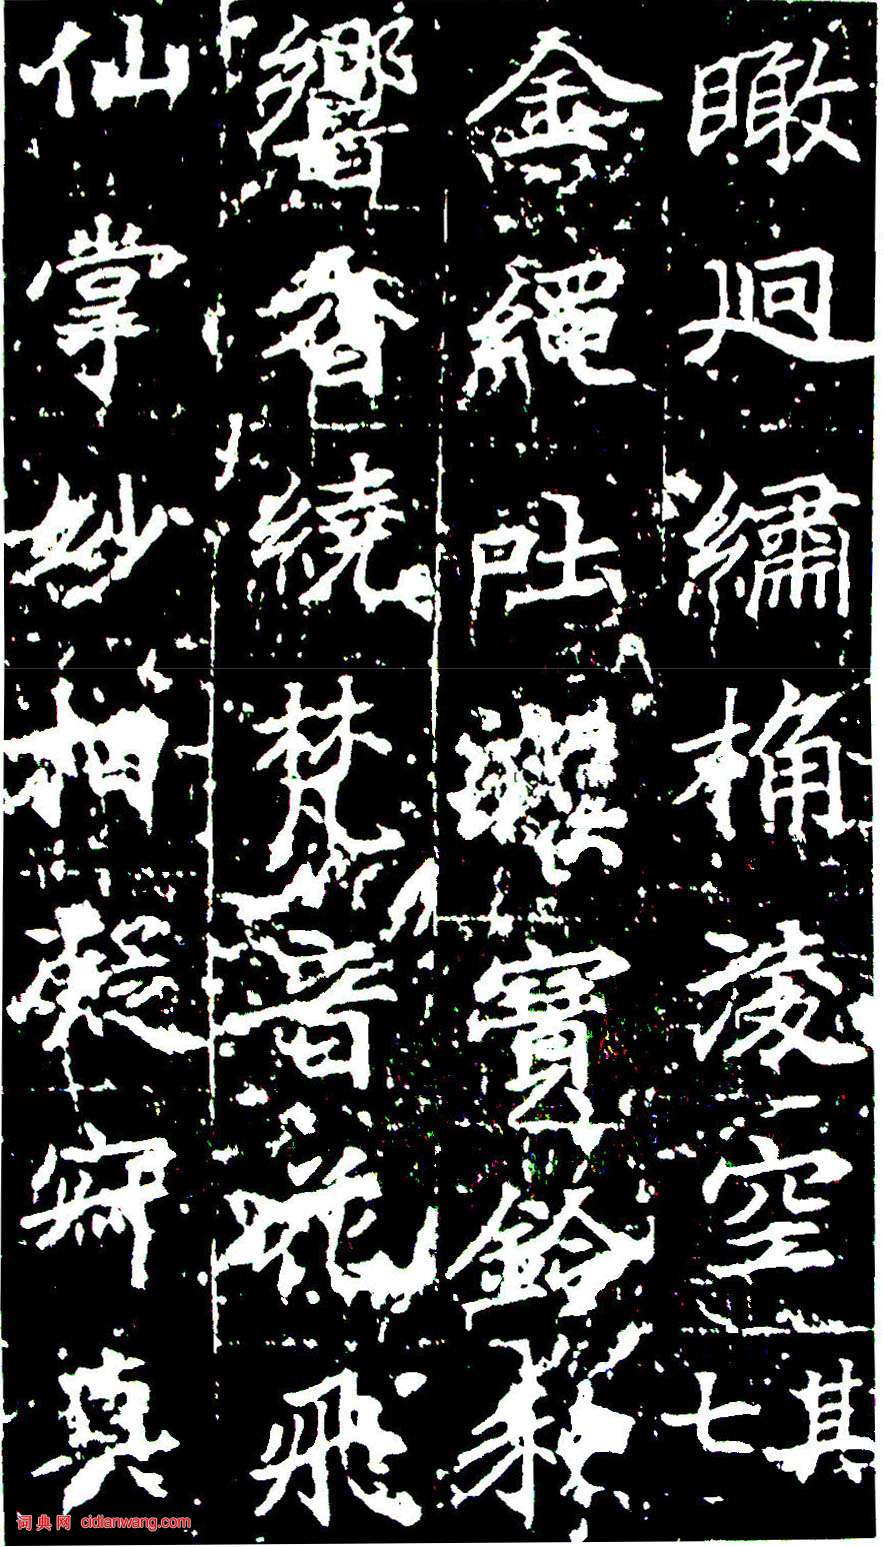 瞰迥繡桷凌空其七
金繩吐曜寶鈴散
響香繞梵音花飛
仙掌妙相凝寂真
词典网 cidianwang.com